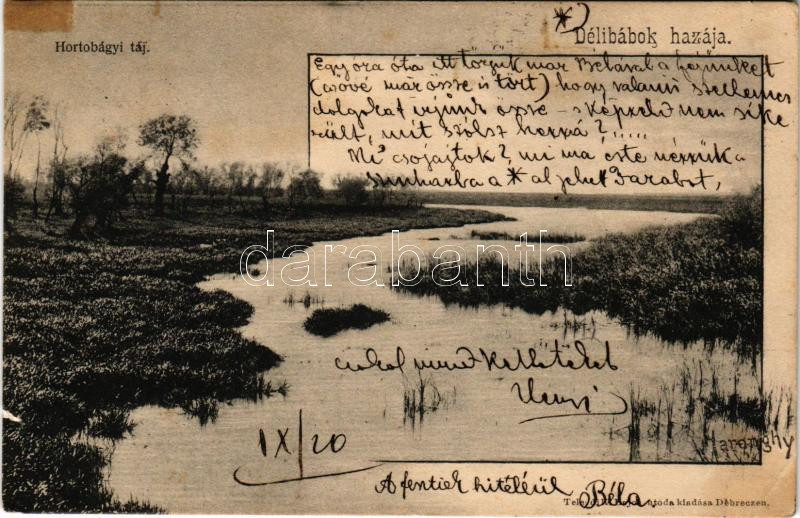 Hortobágyi táj.
Délibábok hazája.
Egy óra óta itt törjük már Bélával a fejünket
(csővé már össze is tört) hogy valami szellemes
dolgokat írjunk össze – s képzeld nem sike
rült, mit szólsz hozzá? .....
Mi , mi ma este nézzük a
színházba a * al jelzett darabot,
csókol mindkettőtöket
IX/20
A fentiek hiteléül
Béla
utóda kiadása Debreczen.
darabanth